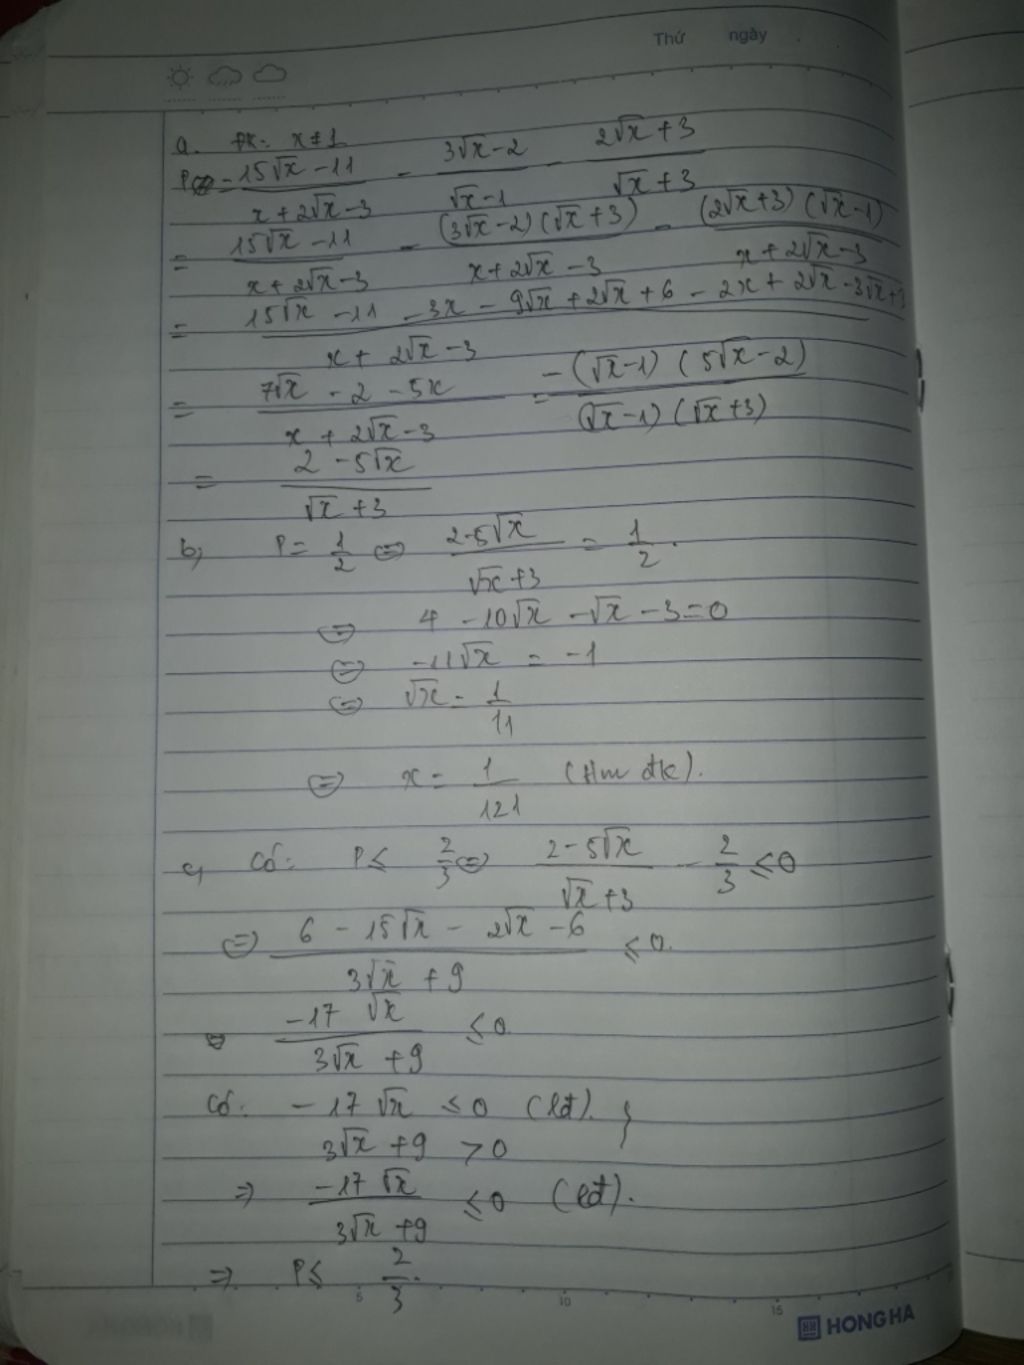 Thứ ngày
a. đk: x ≠ 1
P = (15√x - 11)/(x + 2√x - 3) - (3√x - 2)/(√x - 1) - (2√x + 3)/(√x + 3)
= (15√x - 11)/(x + 2√x - 3) - (3√x - 2)(√x + 3)/(x + 2√x - 3) - (2√x + 3)(√x - 1)/(x + 2√x - 3)
= (15√x - 11 - 3x - 9√x + 2√x + 6 - 2x + 2√x - 3√x + 3)/(x + 2√x - 3)
= (7√x - 2 - 5x)/(x + 2√x - 3) = -(√x - 1)(5√x - 2)/(√x - 1)(√x + 3)
= (2 - 5√x)/(√x + 3)
b, P = 1/2 ⇔ (2 - 5√x)/(√x + 3) = 1/2.
⇔ 4 - 10√x - √x - 3 = 0
⇔ -11√x = -1
⇔ √x = 1/11
⇔ x = 1/121 (tm đk).
c, Có: P ≤ 2/3 ⇔ (2 - 5√x)/(√x + 3) - 2/3 ≤ 0
⇔ (6 - 15√x - 2√x - 6)/(3√x + 9) ≤ 0.
⇔ (-17√x)/(3√x + 9) ≤ 0
Có: -17√x ≤ 0 (lđ). }
3√x + 9 > 0
⇒ (-17√x)/(3√x + 9) ≤ 0 (lđ).
⇒ P ≤ 2/3.
5 10 15
HONG HA